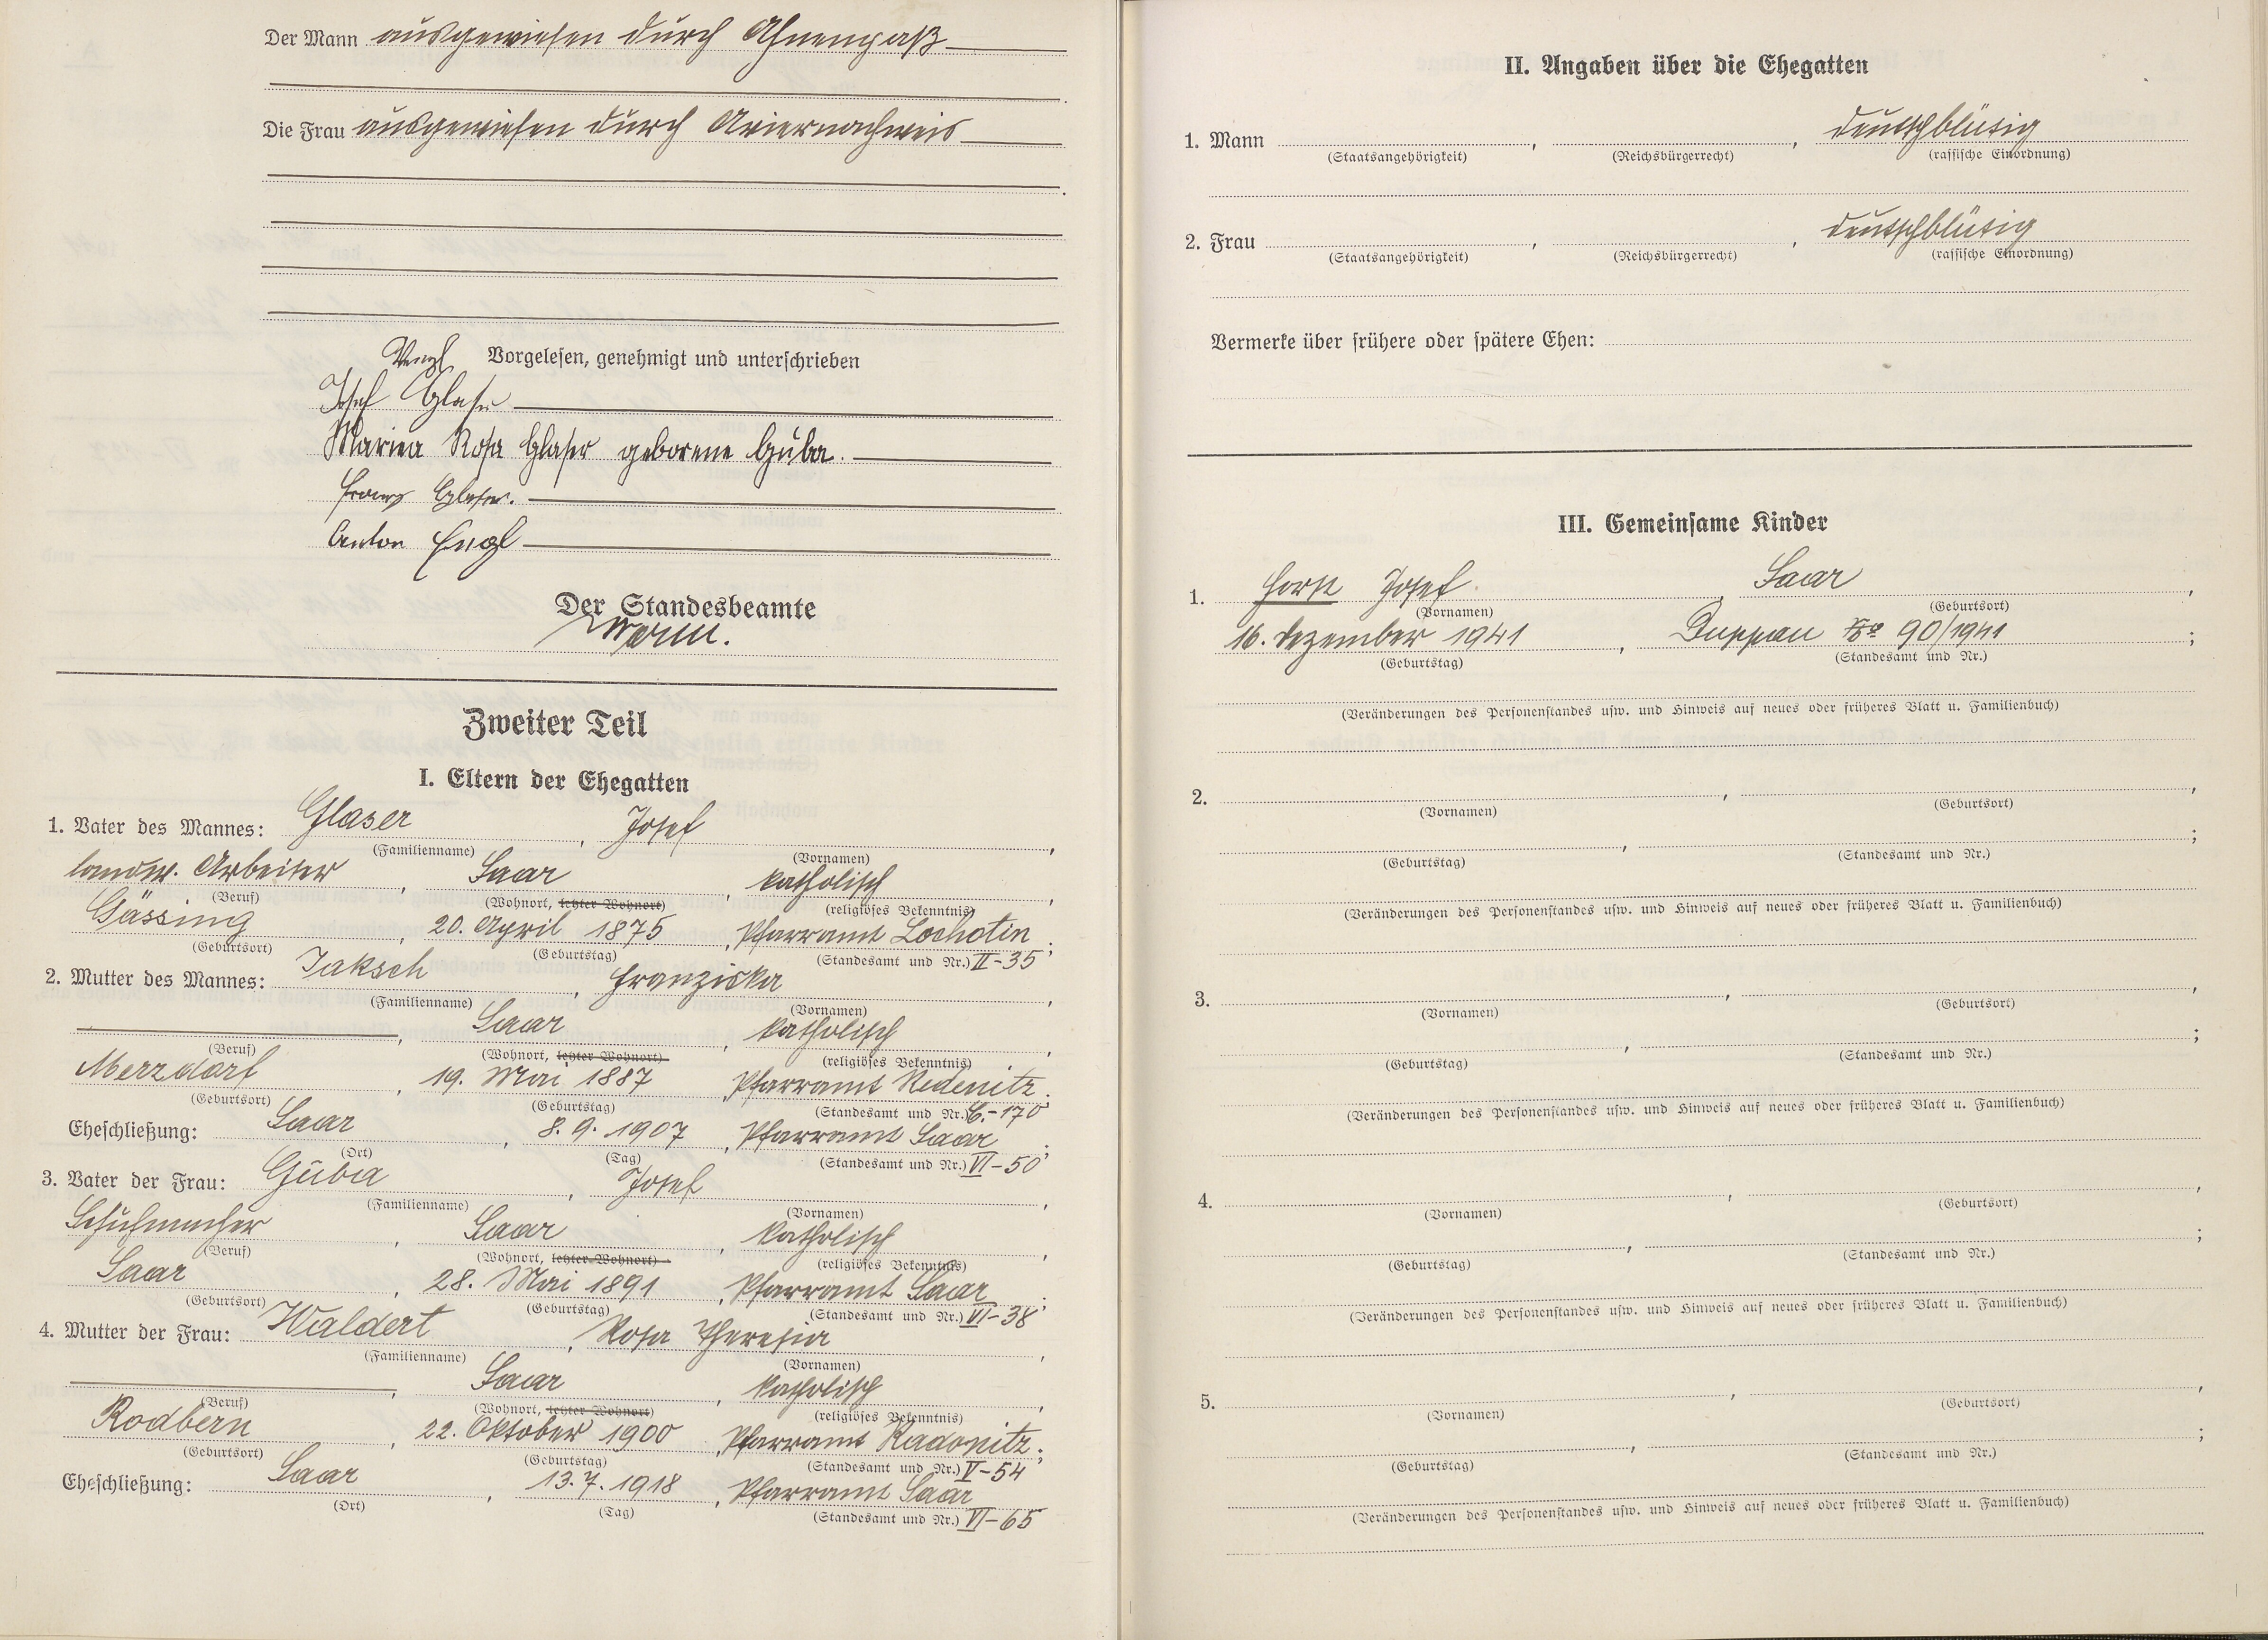 Der Mann ausgewiesen durch Ahnenpaß
Die Frau ausgewiesen durch Ariernachweis
Vorgelesen, genehmigt und unterschrieben
Josef Glaser
Mariea Rosa Glaser geborene Guba.
Franz Glaser.
Anton Engl
Der Standesbeamte
Zweiter Teil
I. Eltern der Ehegatten
1. Vater des Mannes: Glaser, Josef,
(Familienname) (Vornamen)
landw. Arbeiter, Saar, katholisch,
(Beruf) (Wohnort, letzter Wohnort) (religiöses Bekenntnis)
Gässing, 20. April 1875, Pfarramt Lochotin;
(Geburtsort) (Geburtstag) (Standesamt und Nr.) II-35
2. Mutter des Mannes: Jaksch, Franziska,
(Familienname) (Vornamen)
, Saar, katholisch,
(Beruf) (Wohnort, letzter Wohnort) (religiöses Bekenntnis)
Merzdorf, 19. Mai 1887, Pfarramt Redenitz.
(Geburtsort) (Geburtstag) (Standesamt und Nr.) C.-170
Eheschließung: Saar, 8. 9. 1907, Pfarramt Saar;
(Ort) (Tag) (Standesamt und Nr.) VI-50
3. Vater der Frau: Guba, Josef,
(Familienname) (Vornamen)
Schuhmacher, Saar, katholisch,
(Beruf) (Wohnort, letzter Wohnort) (religiöses Bekenntnis)
Saar, 28. Mai 1891, Pfarramt Saar;
(Geburtsort) (Geburtstag) (Standesamt und Nr.) VI-38
4. Mutter der Frau: Waldert, Rosa Theresia,
(Familienname) (Vornamen)
, Saar, katholisch,
(Beruf) (Wohnort, letzter Wohnort) (religiöses Bekenntnis)
Rodbern, 22. Oktober 1900, Pfarramt Radonitz;
(Geburtsort) (Geburtstag) (Standesamt und Nr.) V-54
Eheschließung: Saar, 13. 7. 1918, Pfarramt Saar
(Ort) (Tag) (Standesamt und Nr.) VI-65
II. Angaben über die Ehegatten
1. Mann , , deutschblütig
(Staatsangehörigkeit) (Reichsbürgerrecht) (rassische Einordnung)
2. Frau , , deutschblütig
(Staatsangehörigkeit) (Reichsbürgerrecht) (rassische Einordnung)
Vermerke über frühere oder spätere Ehen:
III. Gemeinsame Kinder
1. Horst Josef, Saar,
(Vornamen) (Geburtsort)
16. Dezember 1941, Duppau No 90/1941;
(Geburtstag) (Standesamt und Nr.)
(Veränderungen des Personenstandes usw. und Hinweis auf neues oder früheres Blatt u. Familienbuch)
2. , ,
(Vornamen) (Geburtsort)
, ;
(Geburtstag) (Standesamt und Nr.)
(Veränderungen des Personenstandes usw. und Hinweis auf neues oder früheres Blatt u. Familienbuch)
3. , ,
(Vornamen) (Geburtsort)
, ;
(Geburtstag) (Standesamt und Nr.)
(Veränderungen des Personenstandes usw. und Hinweis auf neues oder früheres Blatt u. Familienbuch)
4. , ,
(Vornamen) (Geburtsort)
, ;
(Geburtstag) (Standesamt und Nr.)
(Veränderungen des Personenstandes usw. und Hinweis auf neues oder früheres Blatt u. Familienbuch)
5. , ,
(Vornamen) (Geburtsort)
, ;
(Geburtstag) (Standesamt und Nr.)
(Veränderungen des Personenstandes usw. und Hinweis auf neues oder früheres Blatt u. Familienbuch)